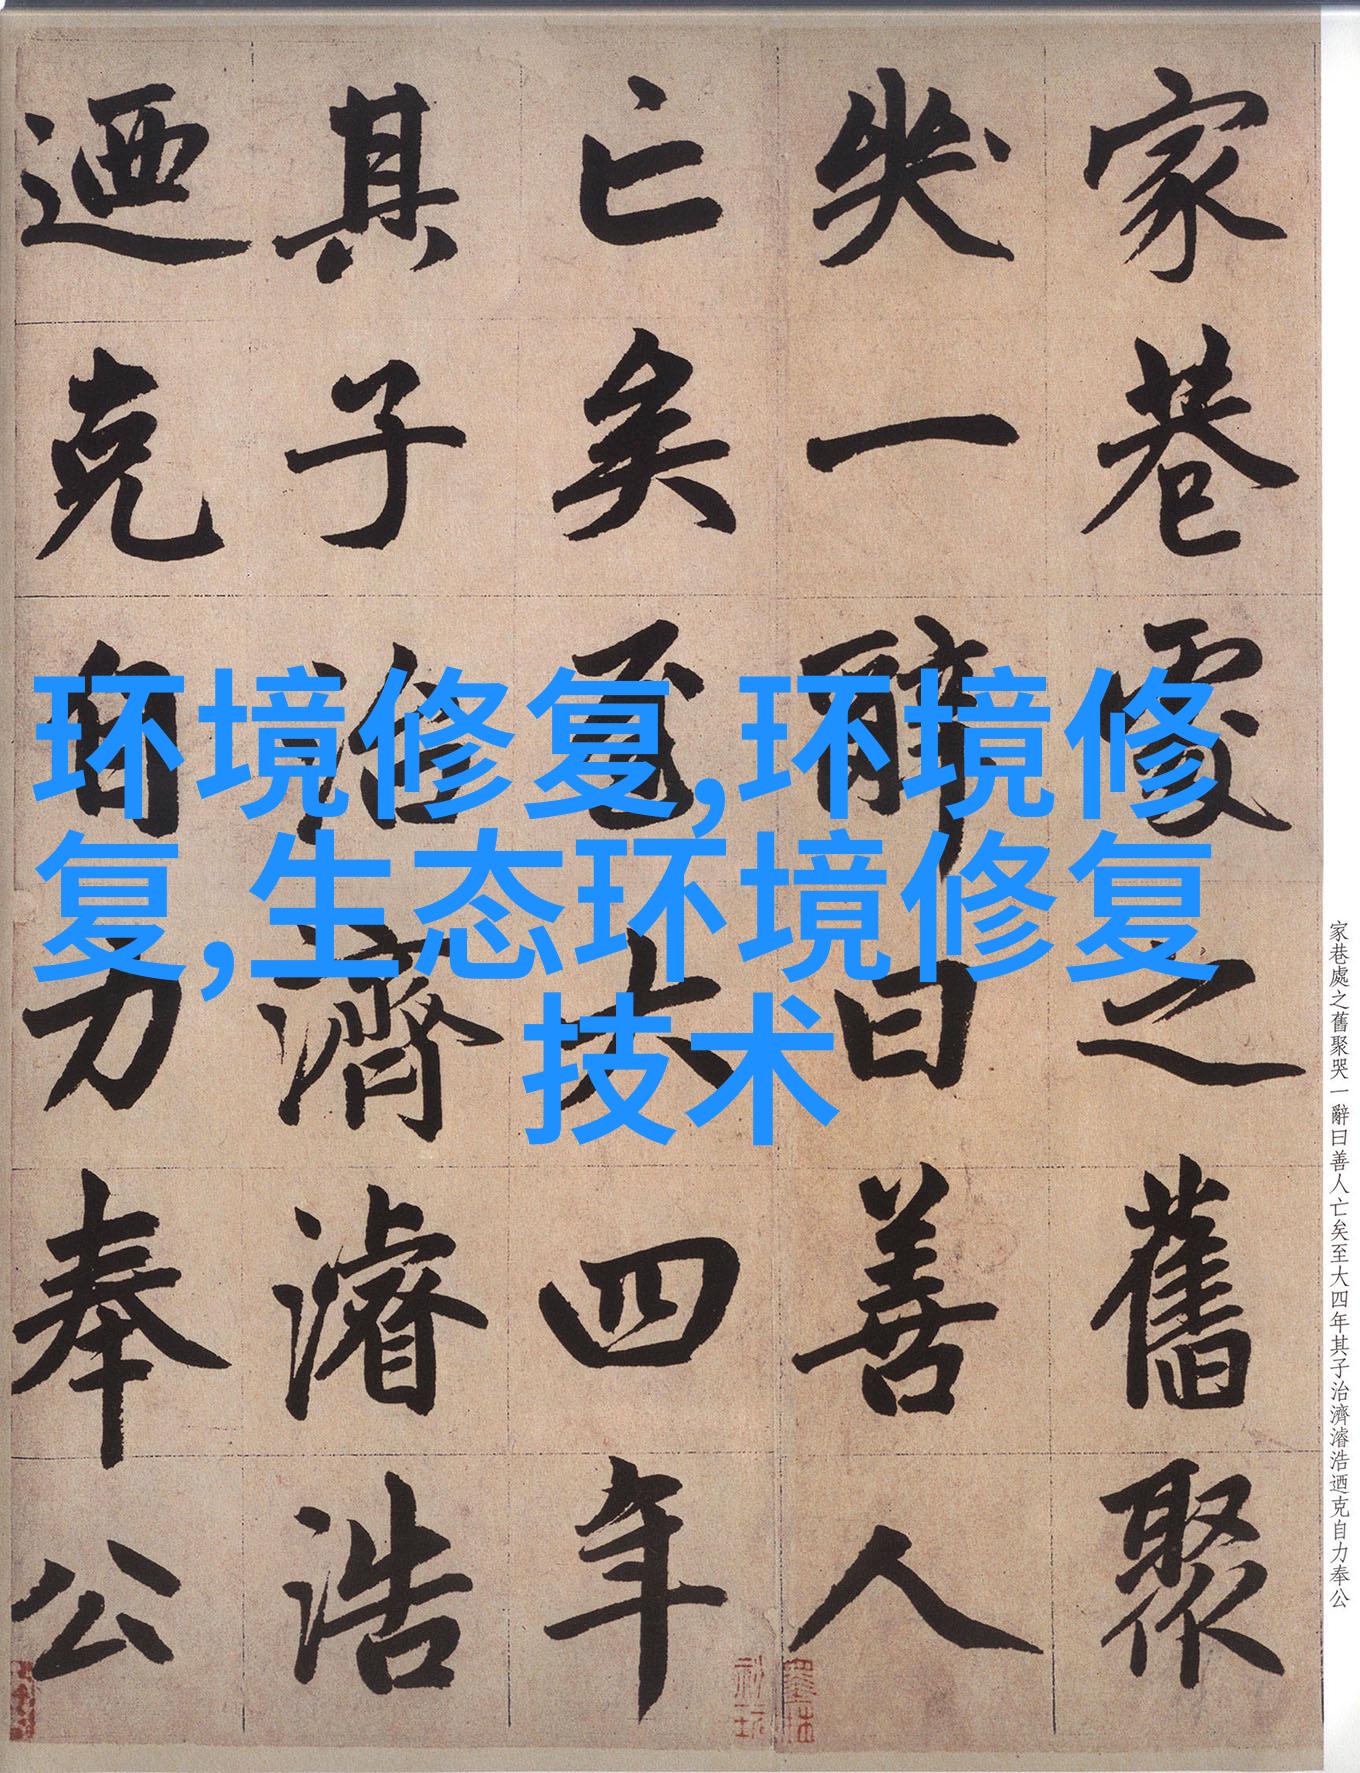 家巷處之舊聚
哭一辭曰善人
亡矣至大四年
其子治濟濬浩
迺克自力奉公
环境修复,环境修
复,生态环境修复
技术
家巷處之舊聚哭一辭曰善人亡矣至大四年其子治濟濬浩迺克自力奉公
墨林
秘玩